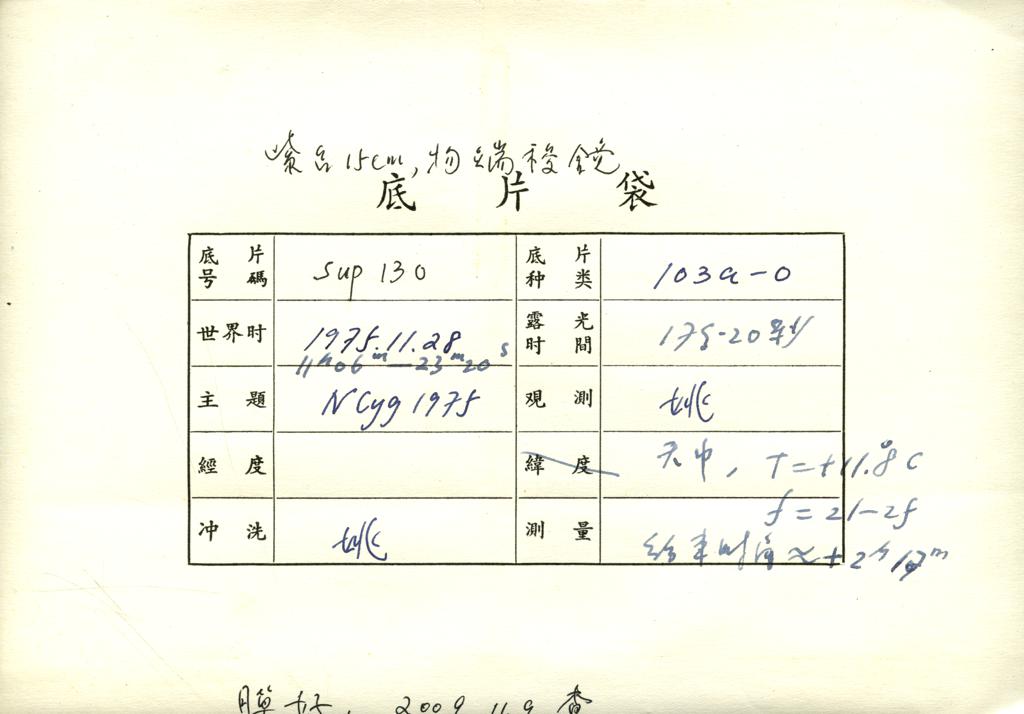 紫台15cm,物端棱鏡
底 片 袋
底片号碼 Sup 130 底片种类 103a-O
世界时 1975.11.28 露光时間 17分20秒
11h06m—23m20s
主題 N Cyg 1975 观測 姚
經度 緯度 天中, T=+11.8°C
f=21-25
冲洗 姚 測量 结束时角≈+2h17m
膜好. 2009.11.9 查